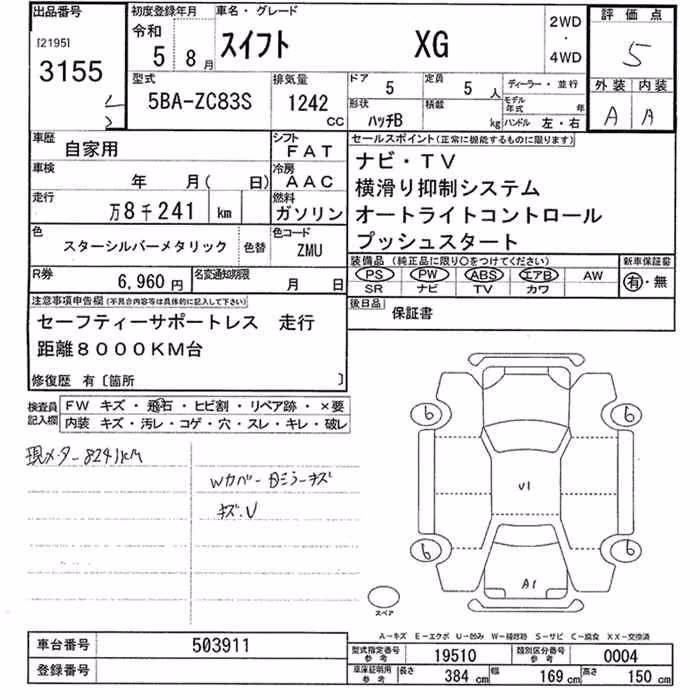 出品番号
[2195]
3155
初度登録年月
令和
5 8月
車名・グレード
スイフト XG
2WD
・
4WD
評価点
5
外装 内装
A A
型式
5BA-ZC83S
排気量
1242
CC
ドア
5
定員
5 人
形状
ハッチB
積載
kg
ディーラー・並行
モデル年式 年
ハンドル 左・右
車歴
自家用
シフト
FAT
車検
年 月( 日)
冷房
AAC
走行
万8千241 km
燃料
ガソリン
色
スターシルバーメタリック
色替
色コード
ZMU
R券
6,960 円
名変通知期限
月 日
セールスポイント(正常に機能するものに限ります)
ナビ・TV
横滑り抑制システム
オートライトコントロール
プッシュスタート
装備品(純正品に限り○をつけてください)
PS PW ABS エアB AW
SR ナビ TV カワ
新車保証書
有・無
後日品
保証書
注意事項申告欄(不具合内容等は具体的に記入して下さい)
セーフティーサポートレス 走行
距離8000KM台
修復歴 有〔箇所 〕
検査員
記入欄
FW キズ・飛石・ヒビ割・リペア跡・×要
内装 キズ・汚レ・コゲ・穴・スレ・キレ・破レ
現メーター8241KM
Wカバー・Bミラーキズ
キズ・U
6 6
U1
6 6
A1
スペア
A-キズ E-エクボ U-凹み W-補修跡 S-サビ C-腐食 XX-交換済
車台番号
503911
登録番号
型式指定番号
参考
19510
類別区分番号
参考
0004
車庫証明用
参考
長さ
384 cm
幅
169 cm
高さ
150 cm